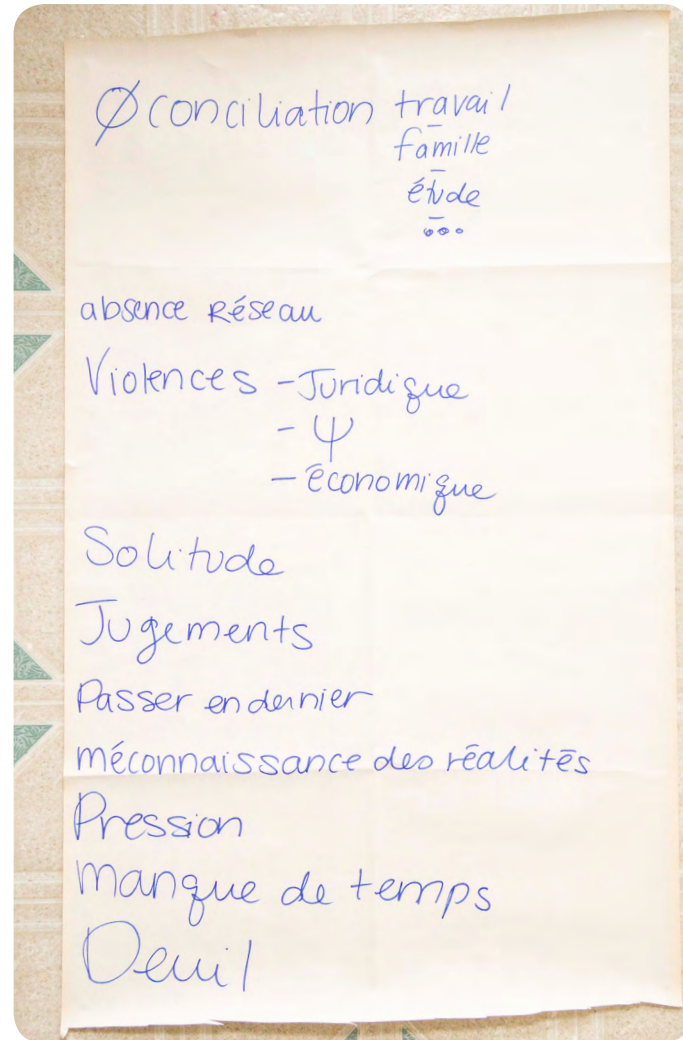 Ø conciliation travail
–
famille
–
étude
–
...
absence Réseau
Violences - Juridique
- Ψ
- économique
Solitude
Jugements
Passer en dernier
méconnaissance des réalités
Pression
manque de temps
Deuil